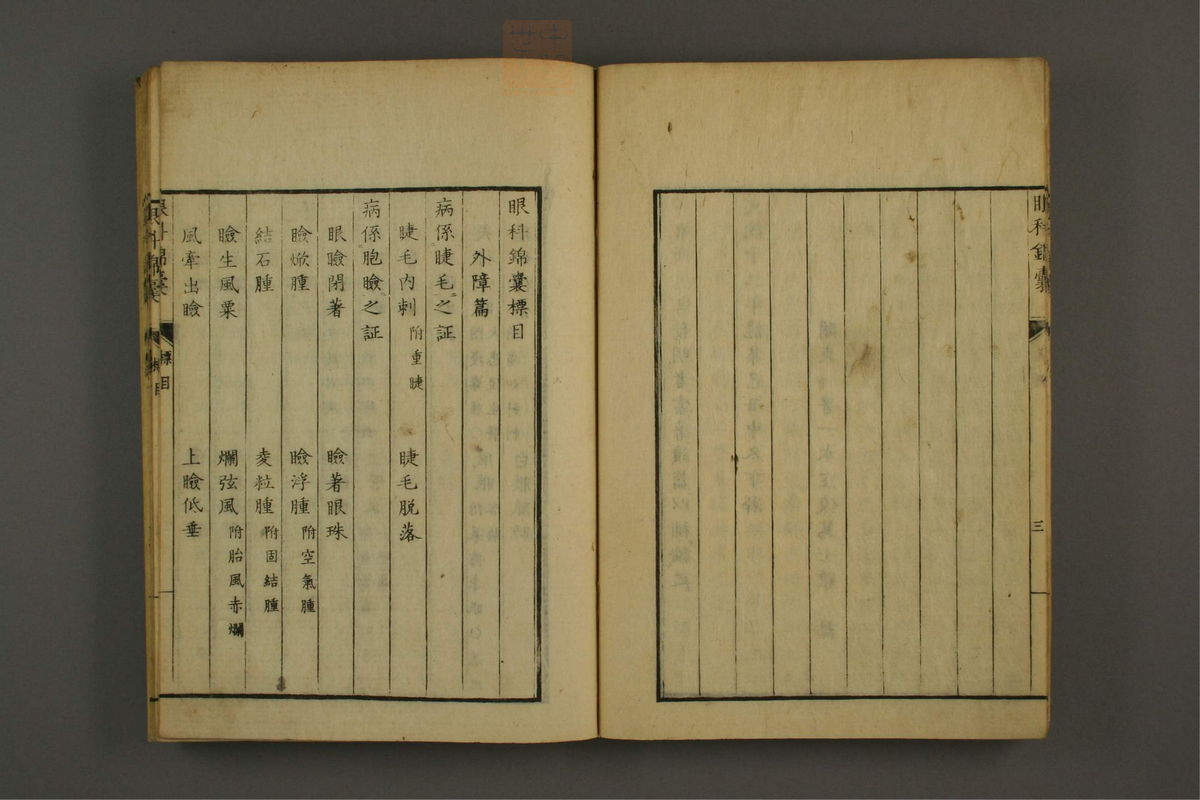 眼科錦囊
三
眼科錦囊標目
外障篇
病係睫毛之証
睫毛內刺 附重睫
睫毛脱落
病係胞瞼之証
眼瞼閉著
瞼著眼珠
瞼焮腫
瞼浮腫 附空氣腫
結石腫
麥粒腫 附固結腫
瞼生風粟
爛弦風 附胎風赤爛
風牽出瞼
上瞼低垂
眼科錦囊
標目